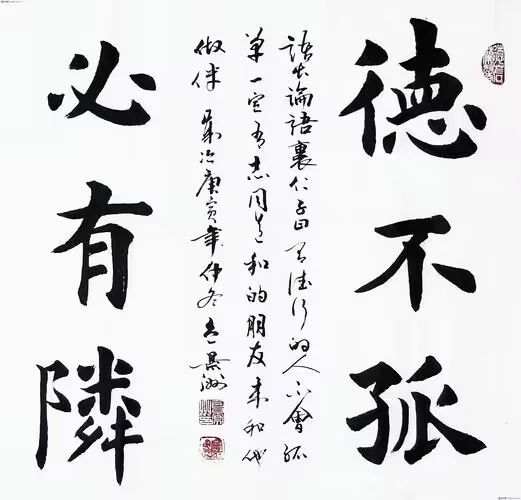 徳不孤
必有隣
語出論語裏仁子曰有德行的人不會孤
單一定有志同道和的朋友来和他
做伴 歲次庚寅年仲冬 景洲